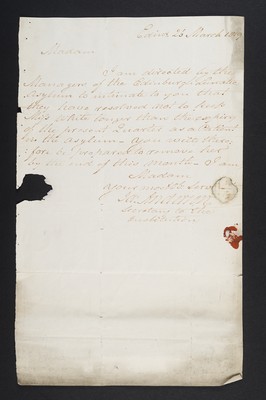 Edinr 23 March 18
Madam
I am directed by the
Managers of the Edinburgh Lunatic
Asylum to intimate to you that
they have resolved not to keep
Miss White longer than the expiry
of the present Quarter as a Patient
in the Asylum - you will there,
fore be prepared to remove her
by the end of this month. I am
Madam
your most Serv
Secretary to the
Institution